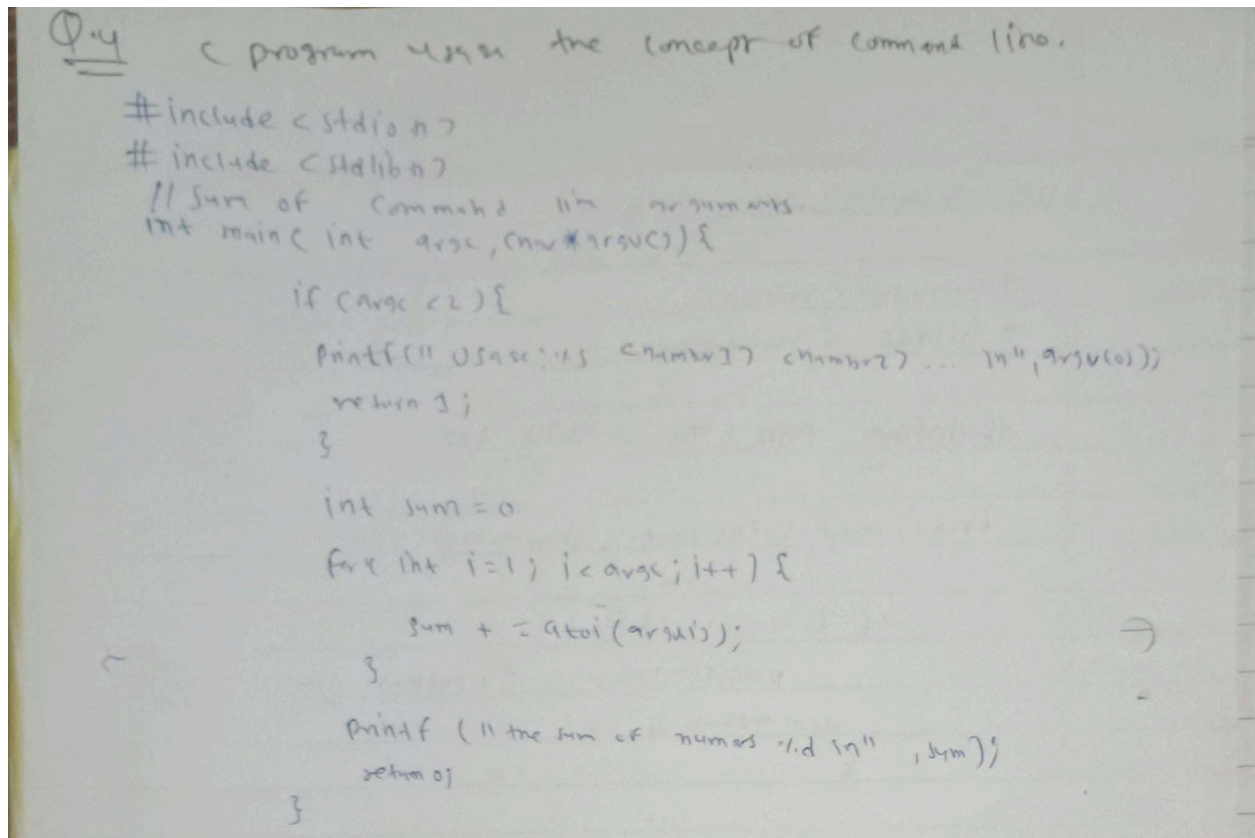 Q.4 C program usage the concept of command line.
#include <stdio.h>
#include <stdlib.h>
// Sum of command line arguments.
int main( int argc, char *argv[]) {
if (argc <2) {
printf(" Usage: %s <number1> <number2> ... \n", argv[0]);
return 1;
}
int sum = 0
for( int i=1; i<argc; i++) {
sum + = atoi(argv[i]);
}
printf (" the sum of numers %d \n" , sum);
return 0;
}